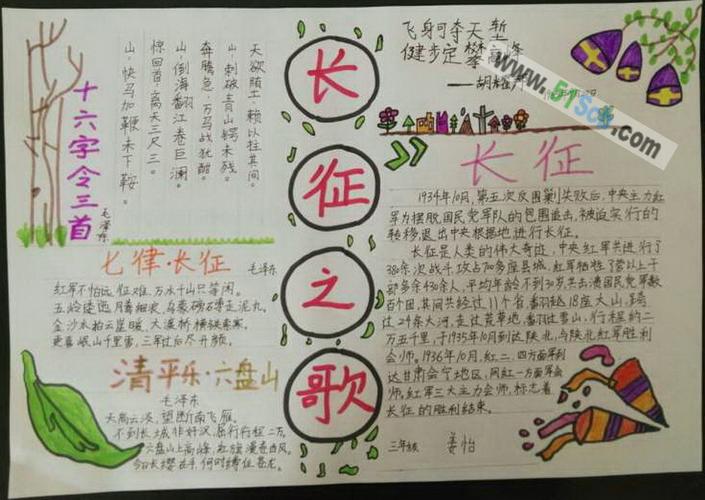 十六字令三首
毛泽东
山,快马加鞭未下鞍。
惊回首,离天三尺三。
山,倒海翻江卷巨澜。
奔腾急,万马战犹酣。
山,刺破青山锷未残。
天欲堕,赖以拄其间。
七律·长征
毛泽东
红军不怕远征难,万水千山只等闲。
五岭逶迤
金沙水拍云崖暖,大渡桥横铁索寒。
更喜岷山千里雪,三军过后尽开颜。
清平乐·六盘山
毛泽东
天高云淡,望断南飞雁。
不到长城非好汉,屈行行程二万。
六盘山上高峰,红旗漫卷西风。
今日长缨在手,何时缚住苍龙。
长征之歌
飞身可夺天堑
健步定攀高峰
——胡耀
www.51Sc
.com
长征
1934年10月,第五次反围剿失败后,中央主力红
军为摆脱国民党军队的包围追击,被迫实行的
转移,退出中央根据地进行长征。
长征是人类的伟大奇迹,中央红军共进行了
380余次战斗攻占700多座县城,红军牺牲了营以上干
部多余430余人,平均年龄不到30岁共击溃国民党军数
百个团,其间共经过11个省,翻越18座大山,跨
过24条大河,走过荒草地,翻过雪山,行程约二
万五千里,于1935年10月到达陕北,与陕北红军胜利
会师。1936年10月,红二、四方面军到
达甘肃会宁地区,同红一方面军会
师。红军三大主力会师,标志着
长征的胜利结束。
三年级 姜怡